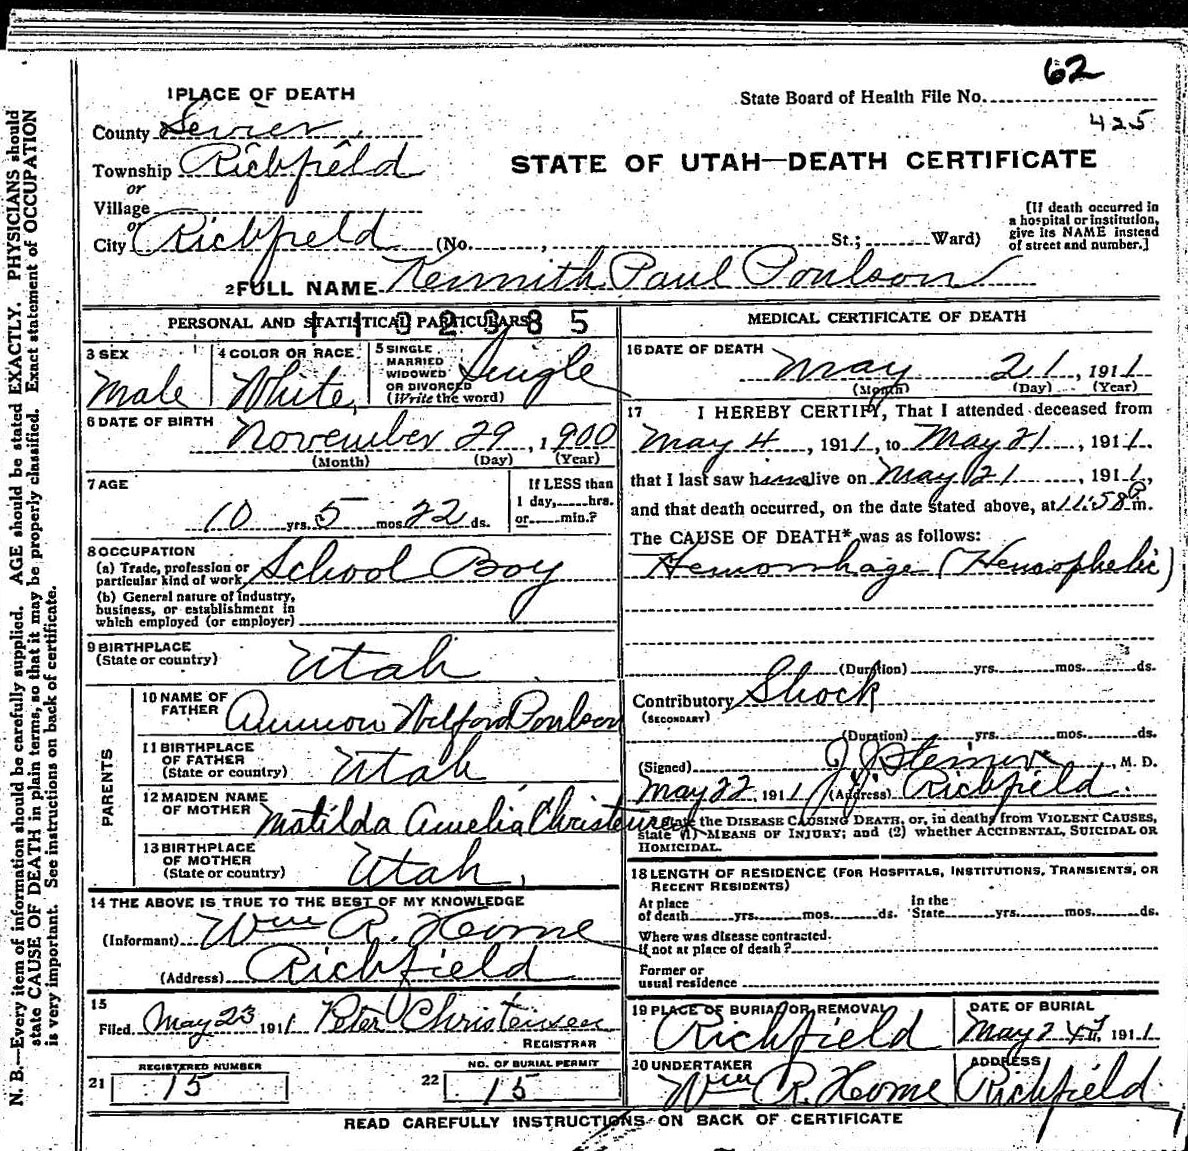 62
1 PLACE OF DEATH
State Board of Health File No.
425
County Sevier
Township Richfield
STATE OF UTAH—DEATH CERTIFICATE
or
Village
or
City Richfield (No. , St.; Ward)
[If death occurred in
a hospital or institution,
give its NAME instead
of street and number.]
2 FULL NAME Kennith Paul Poulson
PERSONAL AND STATISTICAL PARTICULARS
1102385
3 SEX
Male
4 COLOR OR RACE
White
5 SINGLE
MARRIED
WIDOWED
OR DIVORCED
(Write the word)
Single
6 DATE OF BIRTH
November 29, 1900
(Month) (Day) (Year)
7 AGE
10 yrs. 5 mos. 22 ds.
If LESS than
1 day, hrs.
or min.?
8 OCCUPATION
(a) Trade, profession or
particular kind of work School Boy
(b) General nature of industry,
business, or establishment in
which employed (or employer)
9 BIRTHPLACE
(State or country) Utah
PARENTS
10 NAME OF
FATHER Ammon Wilford Poulson
11 BIRTHPLACE
OF FATHER
(State or country) Utah
12 MAIDEN NAME
OF MOTHER Matilda Amelia Christensen
13 BIRTHPLACE
OF MOTHER
(State or country) Utah
14 THE ABOVE IS TRUE TO THE BEST OF MY KNOWLEDGE
(Informant) Wm R. Horne
(Address) Richfield
15
Filed May 23 1911 Peter Christensen
REGISTRAR
REGISTERED NUMBER
21 15
NO. OF BURIAL PERMIT
22 15
MEDICAL CERTIFICATE OF DEATH
16 DATE OF DEATH
May 21, 1911
(Month) (Day) (Year)
17 I HEREBY CERTIFY, That I attended deceased from
May 4, 1911, to May 21, 1911.
that I last saw him alive on May 21, 1911,
and that death occurred, on the date stated above, at 11:58 P m.
The CAUSE OF DEATH* was as follows:
Hemorrhage (Hemophelic)
(Duration) yrs. mos. ds.
Contributory Shock
(SECONDARY)
(Duration) yrs. mos. ds.
(Signed) J.J. Steiner, M. D.
May 22, 1911 (Address) Richfield.
*State the DISEASE CAUSING DEATH, or, in deaths from VIOLENT CAUSES,
state (1) MEANS OF INJURY; and (2) whether ACCIDENTAL, SUICIDAL OR
HOMICIDAL.
18 LENGTH OF RESIDENCE (FOR HOSPITALS, INSTITUTIONS, TRANSIENTS, OR
RECENT RESIDENTS)
At place
of death yrs. mos. ds.
In the
State yrs. mos. ds.
Where was disease contracted.
If not at place of death?
Former or
usual residence
19 PLACE OF BURIAL OR REMOVAL
Richfield
DATE OF BURIAL
May 24th, 1911
20 UNDERTAKER
Wm R. Horne
ADDRESS
Richfield
READ CAREFULLY INSTRUCTIONS ON BACK OF CERTIFICATE
N. B.—Every item of information should be carefully supplied. AGE should be stated EXACTLY. PHYSICIANS should
state CAUSE OF DEATH in plain terms, so that it may be properly classified. Exact statement of OCCUPATION
is very important. See instructions on back of certificate.